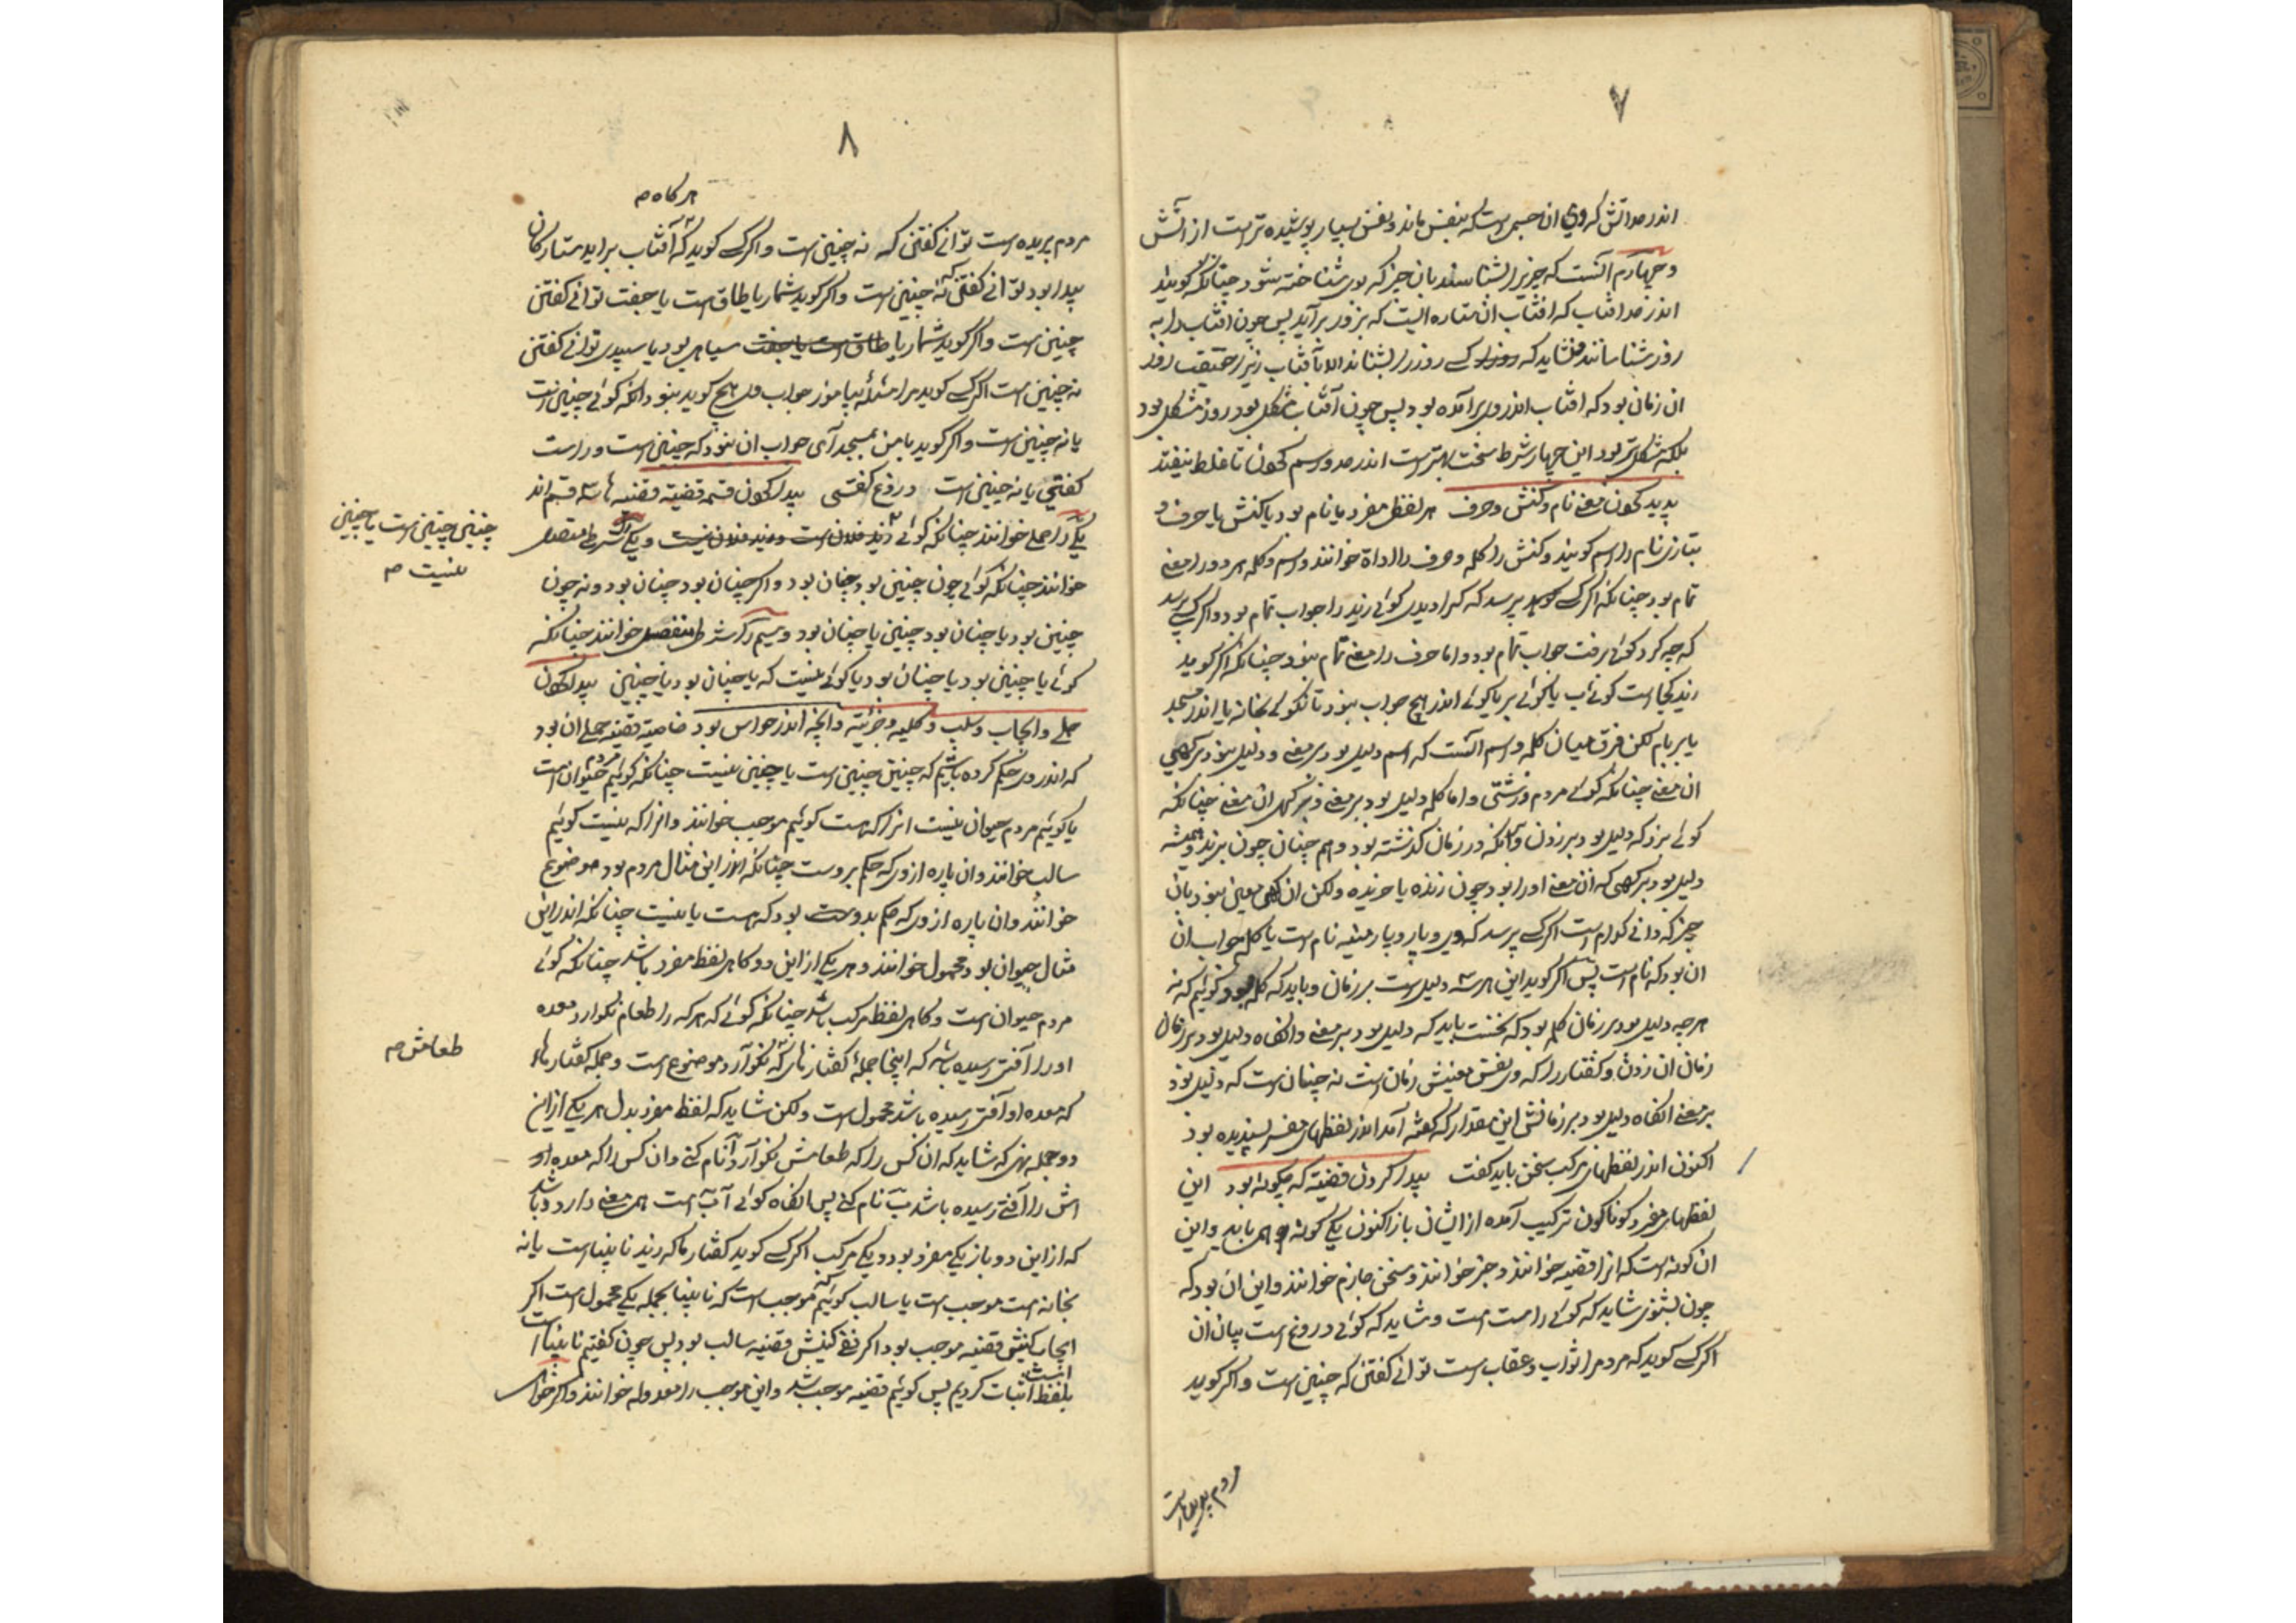 ۷
اندر حد آتش که وی ان جسمی است که بنفس ماند و نفس بسیار پوشیده تر است از آتش
و چهارم آنست که چیزیرا بشناسند بان چیز که بوی شناخته شود چنانکه گویند
اندر حد افتاب که افتاب ان ستاره ایست که بروز برآید پس چون افتاب را به
روز شناسانند و نشاید که کسی روز را بشناند الا بآفتاب زیرا حقیقت روز
ان زمان بود که افتاب اندر وی برآمده بود پس چون آفتاب مشکل بود روز مشکل بود
بلکه مشکل تر بود این چهار شرط سخت بهتر است اندر حد و رسم کردن تا غلط نیفتد
پدید کردن معنی نام و کنش و حرف هر لفظی مفرد یا نام بود یا کنش یا حرف و
بتازی نام را اسم گویند و کنش را کلمه و حرف را اداة خوانند و اسم و کلمه هر دو را معنی
تمام بود چنانکه اگر کسی پرسد که کرا دیدی گوئی زید را جواب تمام بود و اگر کسی پرسد
که چه کرد گوئی برفت جواب تمام بود و اما حرف را معنی تمام نبود چنانکه اگر گوید
زید کجا است گوئی ب یا گوئی بر یا گوئی اندر هیچ جواب نبود تا نگوئی بخانه یا اندر مسجد
یا بر بام لکن فرق میان کلمه و اسم آنست که اسم دلیل بود بر معنی و دلیل نبود بر کهی
ان معنی چنانکه گوئی مردم و زشتی و اما کلمه دلیل بود بر معنی و بر کهی ان معنی چنانکه
گوئی بزد که دلیل بود بر زدن و آنکه در زمان گذشته بود و هم چنان چون بزند و همیشه
دلیل بود بر کهی که ان معنی او را بود چون زننده یا خورنده ولکن ان کهی معین نبود بان
چیز که دانی کدام است اگر کسی پرسد که دی و پار و پارینه نام است یا کلمه جواب ان
ان بود که نام است پس اگر گوید این هر سه دلیل است بر زمان و باید که کلمه بود گوئیم که نه
هرچه دلیل بود بر زمان کلمه بود که نخست باید که دلیل بود بر معنی و انگاه دلیل بود بر زمان
زمان ان زدن و گفتار را که وی نفس معنیش زمان است نه چنان است که دلیل بود
بر معنی انگاه دلیل بود بر زمانش این مقدار که گفته آمد اندر لفظهای مفرد پسندیده بود
اکنون اندر لفظهای مرکب سخن باید گفت پیدا کردن قضیه که چگونه بود این
لفظهای مفرد گوناگون ترکیب آمده از ایشان باز اکنون یکی گونه همی باید و این
ان گونه است که انرا قضیه خوانند و خبر خوانند و سخن جازم خوانند و این ان بود که
چون بشنوی شاید که گوئی راست است و شاید که گوئی دروغ است بیان ان
اگر کسی گوید که مردم را ثواب و عقاب است توانی گفتن که چنین است و اگر گوید
مردم پریده است
۸
هرگاه م
مردم پریده است توانی گفتن که نه چنین است و اگر کسی گوید که آفتاب براید ستارگان
پیدا بود توانی گفتن که نه چنین است و اگر گوید شمار یا طاق است یا جفت توانی گفتن
چنین است و اگر گوید شمار یا طاق است یا جفت سیاهی بود یا سپیدی توانی گفتن
نه چنین است اگر کسی گوید مرا مسئله بیاموز جواب وی هیچ گوید نبود آنکه گوئی چنین است
یا نه چنین است و اگر گوید با من بمسجد آی جواب ان نبود که چنین است و راست
گفتی یا نه چنین است دروغ گفتی پیدا کردن قسمة قضیه قضیه ها سه قسم اند
یکی را حملی خوانند چنانکه گوئی زید فلان است و زید فلان نیست و یکی را شرطی متصل
خوانند چنانکه گوئی چون چنین بود چنان بود و اگر چنان بود چنان بود و نه چون
چنین بود یا چنان بود چنین یا چنان بود و سیم را شرطی منفصل خوانند چنانکه
گوئی یا چنین بود یا چنان بود یا گوئی نیست که یا چنان بود یا چنین پیدا کردن
حملی و ایجاب و سلب و کلیه و جزئیه و انچه اندر خواس بود خاصیة قضیه حملی ان بود
که اندر وی حکم کرده باشیم که چنین چنین است یا چنین نیست چنانکه گوئیم مردم حیوان است
یا گوئیم مردم حیوان نیست انرا که هست گوئیم موجب خوانند و انرا که نیست گوئیم
سالب خوانند و ان پاره از وی که حکم بروست چنانکه اندر این مثال مردم بود موضوع
خوانند و ان پاره از وی که حکم بدوست بود که هست یا نیست چنانکه اندر این
مثال حیوان بود محمول خوانند و هر یکی از این دو گاهی لفظ مفرد باشد چنانکه گوئی
مردم حیوان است و گاهی لفظ مرکب باشد چنانکه گوئی که هر که را طعام نگوارد معده
او را آفتی رسیده باشد که اینجا جمله گفتار ناگوارد موضوع است و جمله گفتار ما
که معده او آفتی رسیده باشد محمول است ولکن شاید که لفظ مفرد بدل هر یکی از این
دو جمله نهی که شاید که ان کس را که طعامش نگوارد آ نام کنی و ان کس را که معده او
اش را آفتی رسیده باشد ب نام کنی پس انگاه گوئی آ ب است همین معنی دارد و باشد
که از این دو باز یکی مفرد بود و یکی مرکب اگر کسی گوید گفتار ما که زید نابیناست یا نه
بخانه است موجب است یا سالب گوئیم که موجب است که نابینا بجمله یکی محمول است اگر
ایجاب کنیش قضیه موجب بود اگر نفی کنیش قضیه سالب بود پس چون گفتیم نابینا است
بلفظ است اثبات کردیم پس گوئیم قضیه موجب شد و این موجب را معدوله خوانند و اگر خواهی
چنین چنین است یا چنین
نیست م
طعامش م